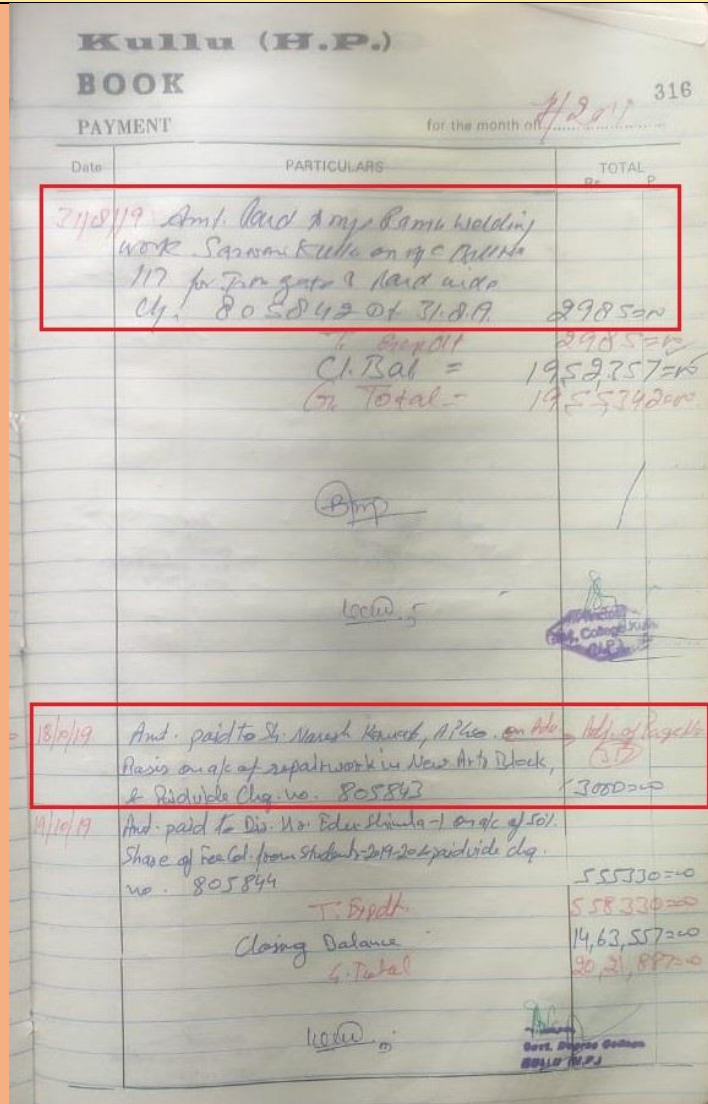 Kullu (H.P.)
BOOK
316
PAYMENT for the month of
Date PARTICULARS TOTAL
Rs. P.
31/08/19 Amt. Paid to m/s Ramu Welding
work Sarwari Kullu on a/c Bill No
117 for Iron gate & Paid vide
Ch. 805842 Dt 31.8.19. 2985=00
T. Expdt 2985=00
Cl. Bal = 1952357=00
G. Total = 1955342=00
Govt. College Kullu
(H.P.)
18/10/19 Amt. paid to Sh. Naresh on Adv Adj. of Page No
Basis on a/c of repair work in New Arts Block,
& Paid vide Chq. no. 805843 3000=00
19/10/19 Amt. paid to Dir. Hr. Edu Shimla-1 on a/c of 50%
Share of Fee Col. from Students-2019-20 & paid vide chq.
no. 805844 555330=00
T. Expdt. 558330=00
Closing Balance 14,63,557=00
G. Total 20,21,887=00
Govt. Degree College
KULLU (H.P.)